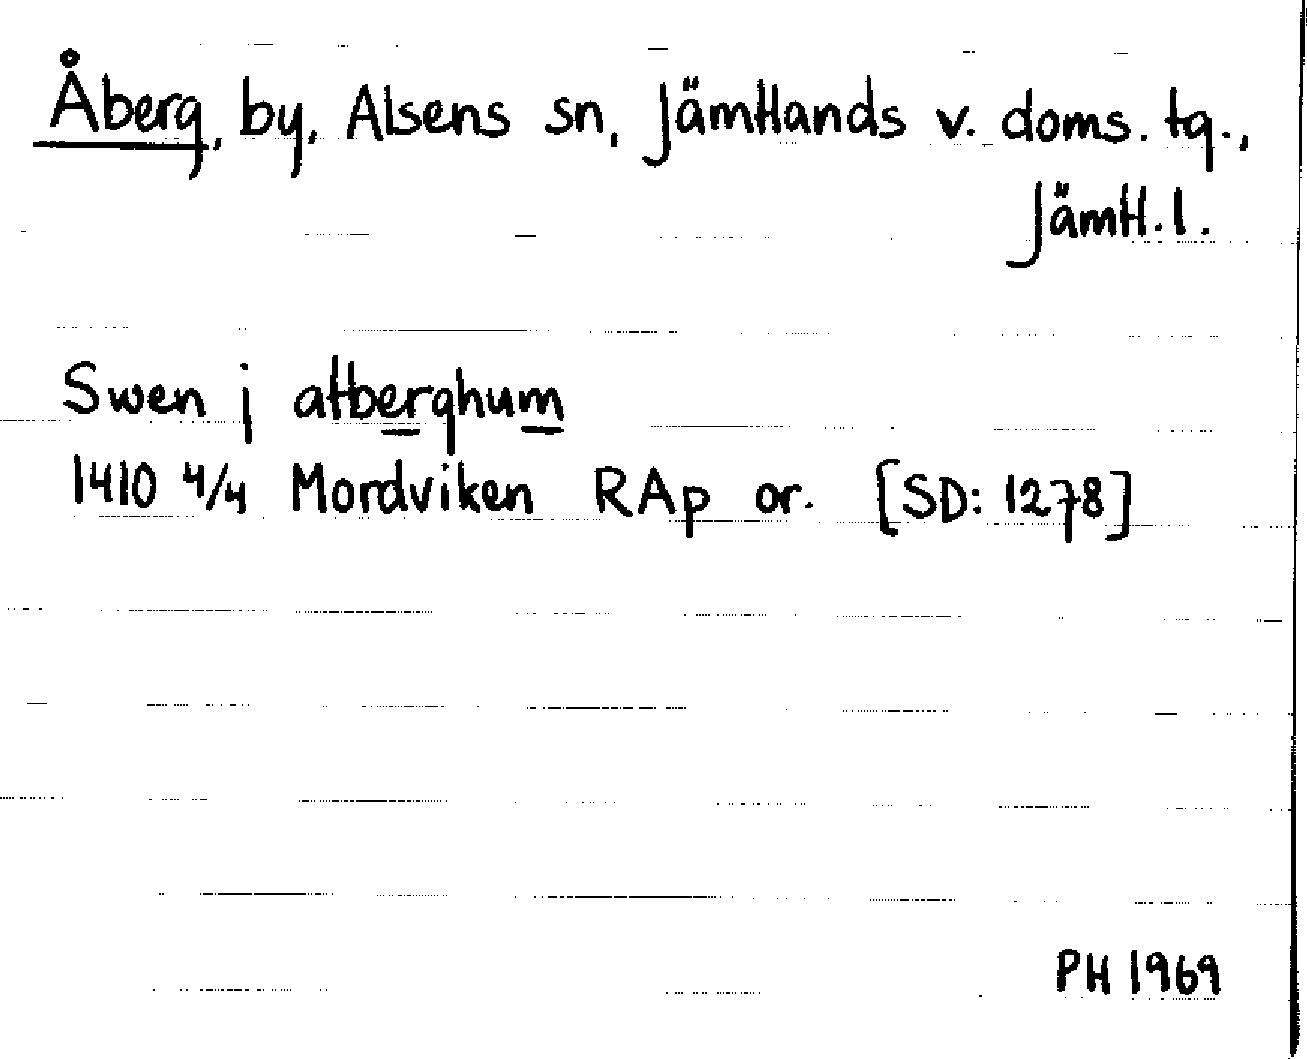 Åberg, by, Alsens sn, Jämtlands v. doms. tg.,
Jämtl. l.
Swen j atberghum
1410 4/4 Mordviken RAp or. [SD: 1278]
PH 1969